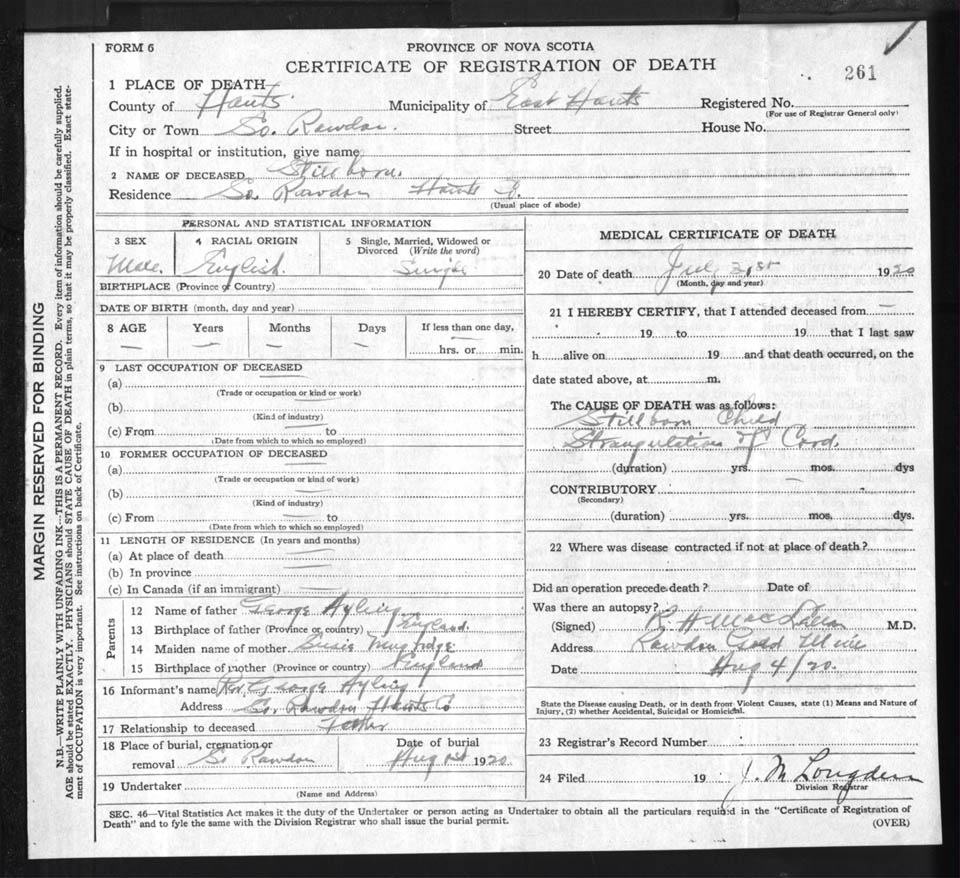 FORM 6
PROVINCE OF NOVA SCOTIA
CERTIFICATE OF REGISTRATION OF DEATH
261
1 PLACE OF DEATH
County of Hants Municipality of East Hants Registered No.
(For use of Registrar General only)
City or Town So. Rawdon. Street House No.
If in hospital or institution, give name
2 NAME OF DECEASED Stillborn.
Residence So. Rawdon Hants
(Usual place of abode)
PERSONAL AND STATISTICAL INFORMATION
3 SEX 4 RACIAL ORIGIN 5 Single, Married, Widowed or Divorced (Write the word)
Male. English. Single
BIRTHPLACE (Province or Country)
DATE OF BIRTH (month, day and year)
8 AGE Years Months Days If less than one day,
hrs. or min.
9 LAST OCCUPATION OF DECEASED
(a)
(Trade or occupation or kind or work)
(b)
(Kind of industry)
(c) From to
(Date from which to which so employed)
10 FORMER OCCUPATION OF DECEASED
(a)
(Trade or occupation or kind of work)
(b)
(Kind of industry)
(c) From to
(Date from which to which so employed)
11 LENGTH OF RESIDENCE (In years and months)
(a) At place of death
(b) In province
(c) In Canada (if an immigrant)
Parents
12 Name of father George Ayling
13 Birthplace of father (Province or country) England.
14 Maiden name of mother Susie Mugridge
15 Birthplace of mother (Province or country) England
16 Informant's name Rev. George Ayling
Address So. Rawdon Hants Co
17 Relationship to deceased Father
18 Place of burial, cremation or removal So Rawdon Date of burial Aug 1920
19 Undertaker
(Name and Address)
MEDICAL CERTIFICATE OF DEATH
20 Date of death July 31st 1920
(Month, day and year)
21 I HEREBY CERTIFY, that I attended deceased from
19 to 19 that I last saw
h alive on 19 and that death occurred, on the
date stated above, at m.
The CAUSE OF DEATH was as follows:
Stillborn Child
Strangulation of Cord.
(duration) yrs. mos. dys
CONTRIBUTORY
(Secondary)
(duration) yrs. mos. dys.
22 Where was disease contracted if not at place of death?
Did an operation precede death? Date of
Was there an autopsy?
(Signed) R H M.D.
Address Rawdon Gold Mine
Date Aug 4/20.
State the Disease causing Death, or in death from Violent Causes, state (1) Means and Nature of
Injury, (2) whether Accidental, Suicidal or Homicidal.
23 Registrar's Record Number
24 Filed 19 J. M. Longden
Division Registrar
SEC. 46—Vital Statistics Act makes it the duty of the Undertaker or person acting as Undertaker to obtain all the particulars required in the "Certificate of Registration of
Death" and to fyle the same with the Division Registrar who shall issue the burial permit.
(OVER)
MARGIN RESERVED FOR BINDING
N.B.—WRITE PLAINLY WITH UNFADING INK—THIS IS A PERMANENT RECORD. Every item of information should be carefully supplied.
AGE should be stated EXACTLY. PHYSICIANS should STATE CAUSE OF DEATH in plain terms, so that it may be properly classified. Exact state-
ment of OCCUPATION is very important. See instructions on back of Certificate.